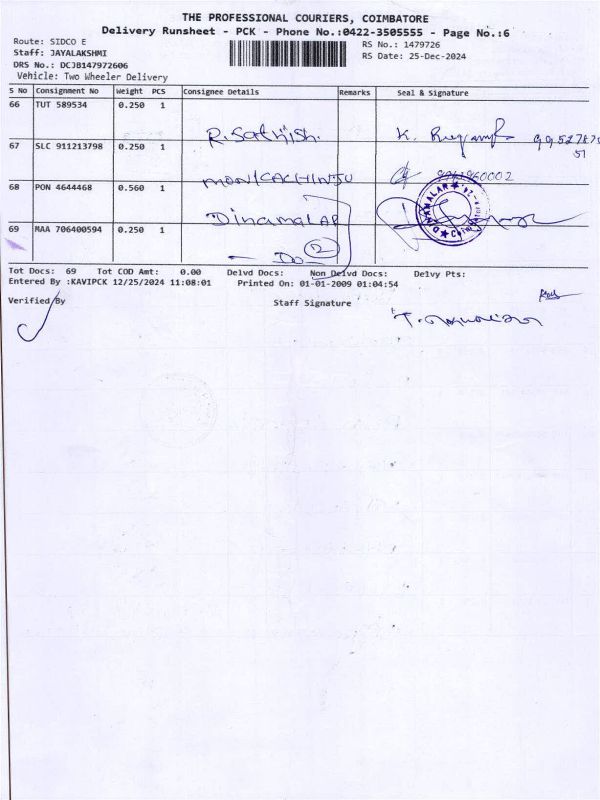 THE PROFESSIONAL COURIERS, COIMBATORE
Delivery Runsheet - PCK - Phone No.:0422-3505555 - Page No.:6
Route: SIDCO E
RS No.: 1479726
Staff: JAYALAKSHMI
RS Date: 25-Dec-2024
DRS No.: DCJB147972606
Vehicle: Two Wheeler Delivery
S No Consignment No Weight PCS Consignee Details Remarks Seal & Signature
66 TUT 589534 0.250 1
R. Sathish. K.
67 SLC 911213798 0.250 1
MONICACHINJU
68 PON 4644468 0.560 1
Dinamalar
DINAMALAR Coimbatore
69 MAA 706400594 0.250 1
- Do - 2
Tot Docs: 69 Tot COD Amt: 0.00 Delvd Docs: Non Delvd Docs: Delvy Pts:
Entered By :KAVIPCK 12/25/2024 11:08:01 Printed On: 01-01-2009 01:04:54
Verified By Staff Signature